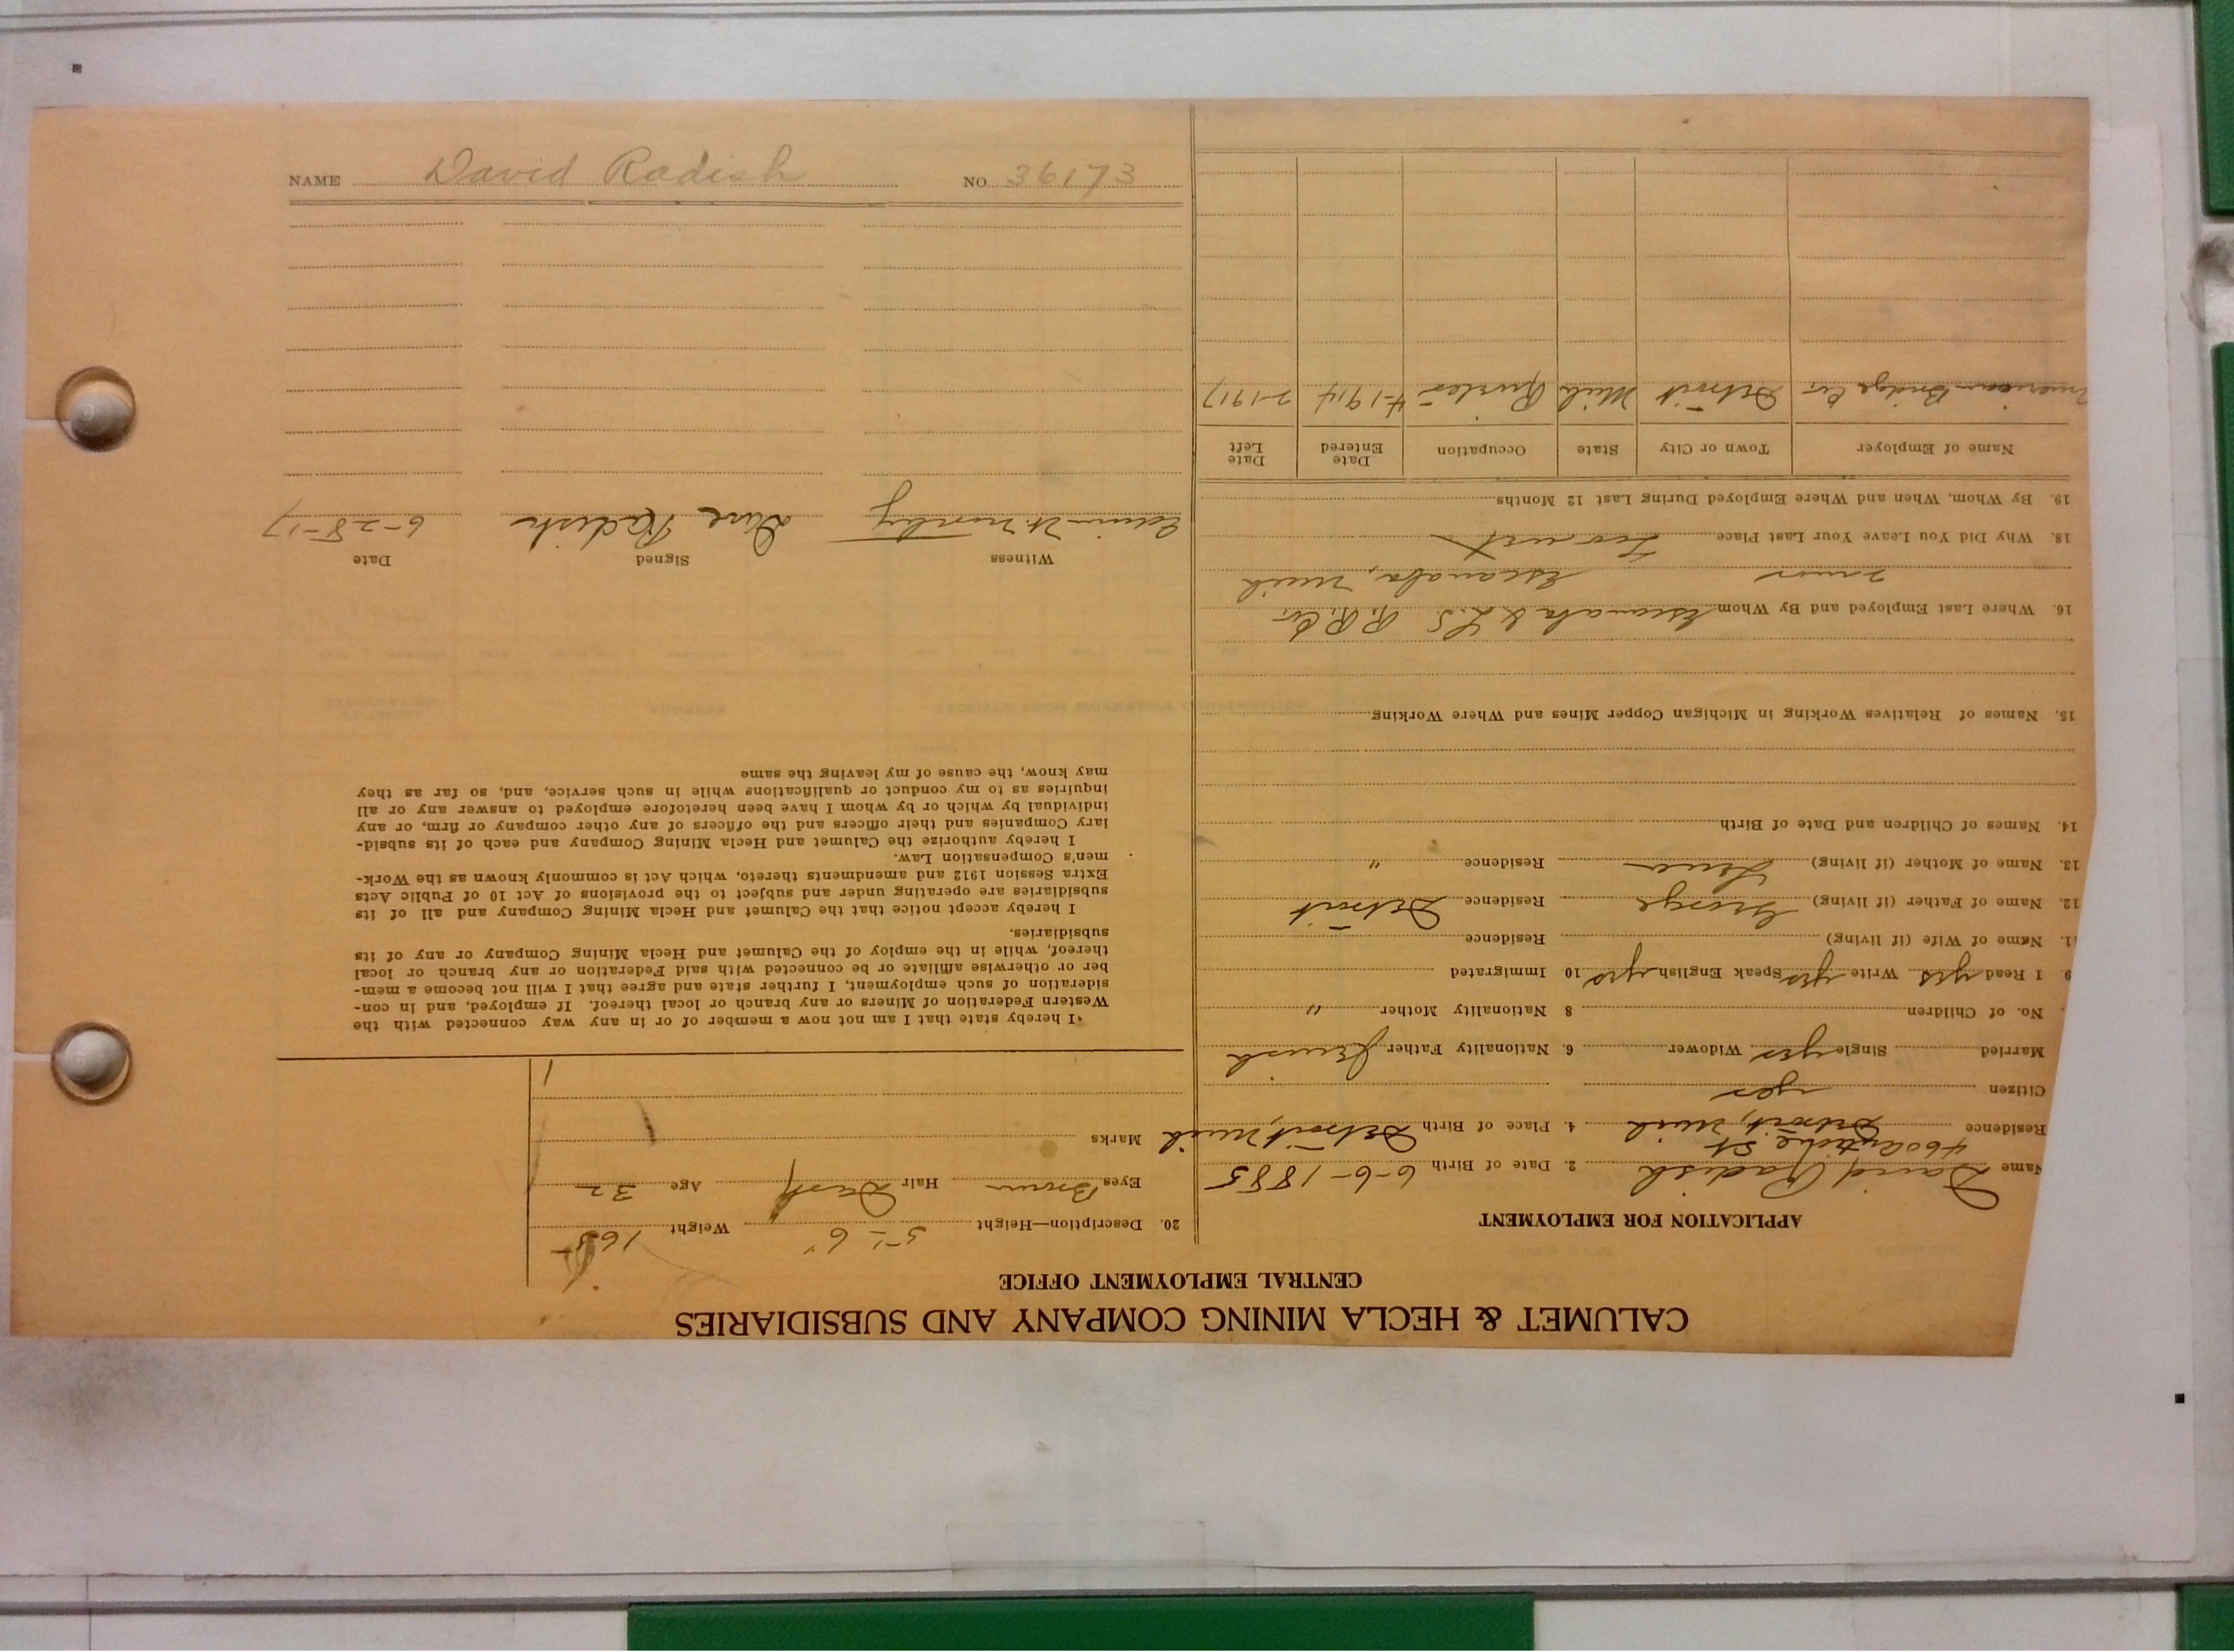 CALUMET & HECLA MINING COMPANY AND SUBSIDIARIES
CENTRAL EMPLOYMENT OFFICE
APPLICATION FOR EMPLOYMENT
Name David Radish 2. Date of Birth 6-6-1885
460 St
Residence Detroit, Mich 4. Place of Birth Detroit, Mich
Citizen yes
Married Single yes Widower 6. Nationality Father Jewish
No. of Children 8 Nationality Mother "
9 I Read yes Write yes Speak English yes 10 Immigrated
11. Name of Wife (if living) Residence
12. Name of Father (if living) George Residence Detroit
13. Name of Mother (if living) Residence "
14. Names of Children and Date of Birth
15. Names of Relatives Working in Michigan Copper Mines and Where Working
16. Where Last Employed and By Whom Escanaba & L.S. R.R. Co.
Escanaba, Mich
18. Why Did You Leave Your Last Place
19. By Whom, When and Where Employed During Last 12 Months
Name of Employer Town or City State Occupation Date Entered Date Left
American Bridge Co. Detroit Mich 4-1914 2-1917
20. Description—Height 5' 6" Weight 165
Eyes Brown Hair Dark Age 32
Marks
I hereby state that I am not now a member of or in any way connected with the
Western Federation of Miners or any branch or local thereof. If employed, and in con-
sideration of such employment, I further state and agree that I will not become a mem-
ber or otherwise affiliate or be connected with said Federation or any branch or local
thereof, while in the employ of the Calumet and Hecla Mining Company or any of its
subsidiaries.
I hereby accept notice that the Calumet and Hecla Mining Company and all of its
subsidiaries are operating under and subject to the provisions of Act 10 of Public Acts
Extra Session 1912 and amendments thereto, which Act is commonly known as the Work-
men's Compensation Law.
I hereby authorize the Calumet and Hecla Mining Company and each of its subsid-
iary Companies and their officers and the officers of any other company or firm, or any
individual by which or by whom I have been heretofore employed to answer any or all
inquiries as to my conduct or qualifications while in such service, and, so far as they
may know, the cause of my leaving the same
Witness Signed Date
Dave Radish 6-28-17
NAME David Radish NO. 36173